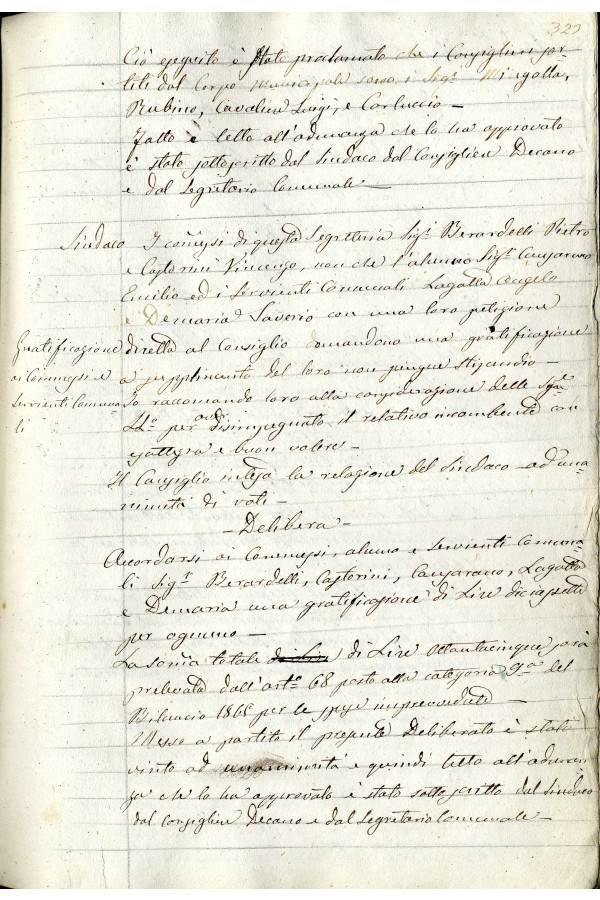 323
Ciò eseguito è stato proclamato che i Consiglieri sor-
titi dal Corpo Municipale sono i Sigri Migotta,
Rubino, Cavaliere Luigi, e Carluccio —
Fatto e letto all'adunanza che lo ha approvato
è stato sottoscritto dal Sindaco dal Consigliere Decano
e dal Segretario Comunale —
Sindaco I comessi di questa Segretteria Sigri Berardelli Pietro
e Castorini Vincenzo, non che l'alunno Sigr Canzarano
Emilio ed i Servienti Comunali Lagatta Angelo
e Demaria Saverio con una loro petizione
Gratificazione diretta al Consiglio domandono una gratificazione
ai Commessi e a supplimento del loro non pingue stipendio —
servienti Comuna- Io raccomando loro alla considerazione delle Sigrie
li LLo per aver disimpegnato il relativo incombente con
esattezza e buon volere —
Il Consiglio intesa la relazione del Sindaco ad una-
nimità di voti —
— Delibera —
Accordarsi ai Commessi, alunno e servienti Comuna-
li Sigri Berardelli, Castorini, Canzarano, Lagatta
e Demaria una gratificazione di Lire diciassette
per ognuno —
La somma totale di Lire Ottantacinque sarà
prelevata dall'arto 68 posto alla categoria 9a del
Bilancio 1865 per le spese imprevedute —
Messo a partito il presente Deliberato è stato
vinto ad unanimità e quindi letto all'adunan
za che lo ha approvato è stato sottoscritto dal Sindaco
dal Consigliere Decano e dal Segretario Comunale —